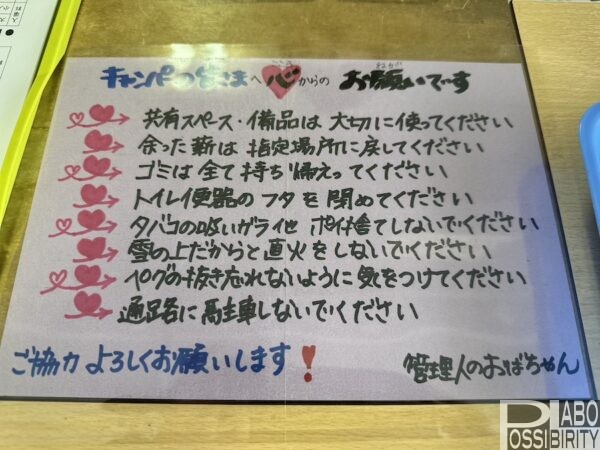 キャンパーの皆さまへ心からのお願いでーす
共有スペース・備品は大切に使ってください
余った薪は指定場所に戻してください
ゴミは全て持ち帰えってください
トイレ便器のフタを閉めてください
タバコの吸いガラ他 ポイ捨てしないでください
雪の上だからと直火をしないでください
ペグの抜き忘れないように気をつけてください
通路に駐車しないでください
ご協力よろしくお願いします!
管理人のおばちゃん
PABO
POSSIBIRITY